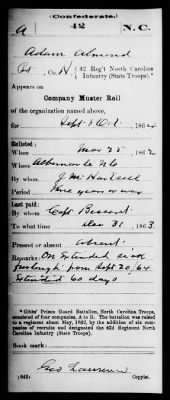 (Confederate.)
42 N.C.
A
Adam Almond
Pvt, Co. H, 42 Reg't North Carolina
Infantry (State Troops).*
Appears on
Company Muster Roll
of the organization named above,
for Sept & Oct, 1864
Enlisted:
When Mar 25, 1862
Where Albemarle NC
By whom J. M. Hartsell
Period three years or war
Last paid:
By whom Capt Bessent
To what time Dec 31, 1863
Present or absent Absent
Remarks: On Extended sick
furlough from Sept 20/64
Extended 60 days
*Gibbs' Prison Guard Battalion, North Carolina Troops,
consisted of four companies, A to D. The battalion was raised
to a regiment about May, 1862, by the addition of six com-
panies of recruits and designated the 42d Regiment North
Carolina Infantry (State Troops).
Book mark:
(642) Copyist.